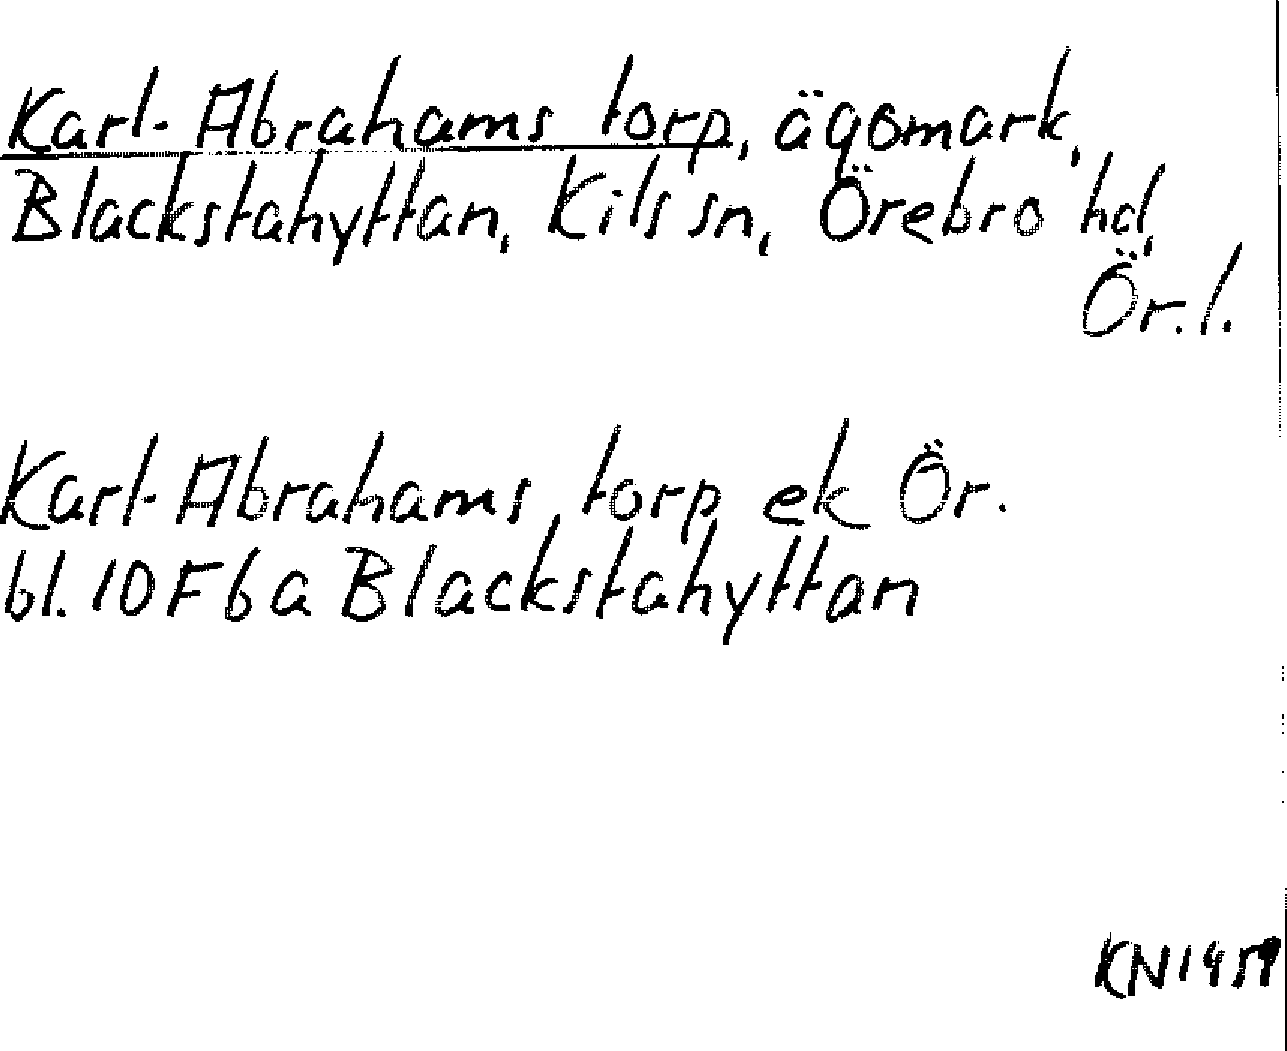 Karl-Abrahams torp, ägomark,
Blackstahyttan, Kils sn, Örebro hd,
Ör. l.
Karl-Abrahams torp ek Ör.
bl. 10F6a Blackstahyttan